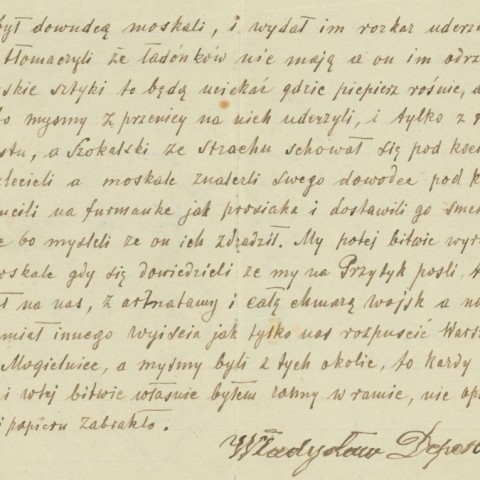 był dowudcą moskali, i wydał im rozkaz uderz
tłomaczyli że ładónków nie mają a on im odrz
skie sztyki to będą uciekać gdzie piepierz rośnie, a
o myśmy z przenicy na nich uderzyli, i tylko z
stu, a Szokalski ze strachu schował się pod
lecieli a moskale znalezli swego dowodce pod k
ucili na furmanke jak prosiaka i dostawili go
e bo mysleli ze on ich zdradził. My potej bitwie wyr
oskale gdy się dowiedzieli ze my na Przytyk posli,
ł na nas, z armatamy i całą chmarą wojsk a na
miał innego wyiscia jak tylko nas rozpuscić Wars
Mogielnice, a myśmy byli z tych okolic, to kazdy
i wtej bitwie własnie byłem ranny w ramie, nie op
i papieru zabrakło.
Władysław